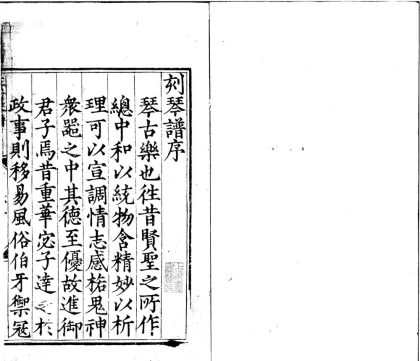 刻琴譜序
琴古樂也徃昔賢聖之所作
總中和以統物含精妙以析
理可以宣調情志感格鬼神
衆噐之中其德至優故進御
君子焉昔重華宓子達之於
政事則移易風俗伯牙禦冦